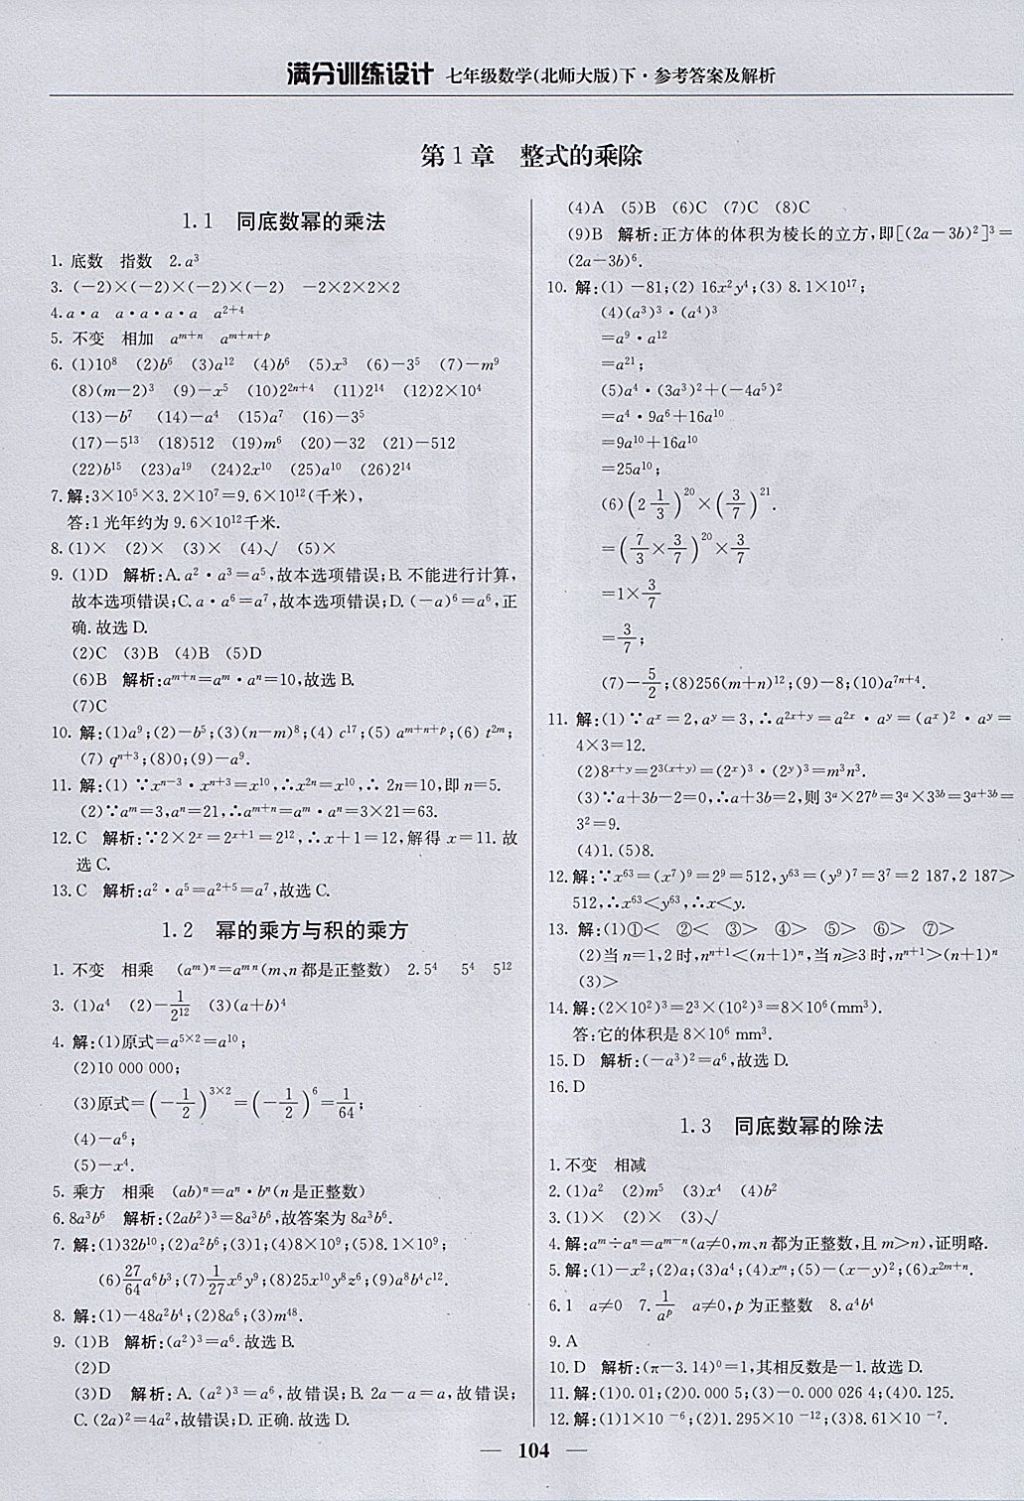 满分训练设计 七年级数学(北师大版)下·参考答案及解析
第1章 整式的乘除
1.1 同底数幂的乘法
1. 底数 指数 2.a³
3. (-2)×(-2)×(-2)×(-2) -2×2×2×2
4.a·a a·a·a·a a²⁺⁴
5. 不变 相加 aᵐ⁺ⁿ aᵐ⁺ⁿ⁺ᵖ
6. (1)10⁸ (2)b⁶ (3)a¹² (4)b⁶ (5)x³ (6)-3⁵ (7)-m⁹
(8)(m-2)³ (9)-x⁵ (10)2²ⁿ⁺⁴ (11)2¹⁴ (12)2×10⁴
(13)-b⁷ (14)-a⁴ (15)a⁷ (16)-3⁵
(17)-5¹³ (18)512 (19)m⁶ (20)-32 (21)-512
(22)b¹⁵ (23)a¹⁹ (24)2x¹⁰ (25)a¹⁰ (26)2¹⁴
7.解:3×10⁵×3.2×10⁷=9.6×10¹²(千米),
答:1光年约为9.6×10¹²千米.
8.(1)× (2)× (3)× (4)√ (5)×
9. (1)D 解析:A.a²·a³=a⁵,故本选项错误;B.不能进行计算,
故本选项错误;C.a·a⁶=a⁷,故本选项错误;D.(-a)⁶=a⁶,正
确.故选D.
(2)C (3)B (4)B (5)D
(6)B 解析:aᵐ⁺ⁿ=aᵐ·aⁿ=10,故选B.
(7)C
10. 解:(1)a⁹;(2)-b⁵;(3)(n-m)⁸;(4) c¹⁷;(5) aᵐ⁺ⁿ⁺ᵖ;(6) t²ᵐ;
(7) qⁿ⁺³;(8)0;(9)-a⁹.
11. 解:(1) ∵xⁿ⁻³·xⁿ⁺³=x¹⁰,∴x²ⁿ=x¹⁰,∴ 2n=10,即n=5.
(2)∵aᵐ=3,aⁿ=21,∴aᵐ⁺ⁿ=aᵐ·aⁿ=3×21=63.
12.C 解析:∵2×2ˣ=2ˣ⁺¹=2¹²,∴x+1=12,解得x=11.故
选C.
13.C 解析:a²·a⁵=a²⁺⁵=a⁷,故选C.
1.2 幂的乘方与积的乘方
1. 不变 相乘 (aᵐ)ⁿ=aᵐⁿ(m、n都是正整数) 2.5⁴ 5⁴ 5¹²
3. (1)a⁴ (2)-1/2¹² (3)(a+b)⁴
4. 解:(1)原式=a⁵ˣ²=a¹⁰;
(2)10 000 000;
(3)原式=(-1/2)³ˣ²=(-1/2)⁶=1/64;
(4)-a⁶;
(5)-x⁴.
5. 乘方 相乘 (ab)ⁿ=aⁿ·bⁿ(n是正整数)
6.8a³b⁶ 解析:(2ab²)³=8a³b⁶,故答案为8a³b⁶.
7. 解:(1)32b¹⁰;(2)a²b⁶;(3)1;(4)8×10⁹;(5)8.1×10⁹;
(6)27/64a⁶b³;(7)1/27x⁶y⁹;(8)25x¹⁰y⁸z⁶;(9)a⁸b⁴c¹².
8. 解:(1)-48a²b⁴;(2)8a⁶;(3)m⁴⁸.
9. (1)B 解析:(a²)³=a⁶.故选B.
(2)D
(3)D 解析:A.(a²)³=a⁶,故错误;B.2a-a=a,故错误;
C.(2a)²=4a²,故错误;D.正确.故选D.
(4)A (5)B (6)C (7)C (8)C
(9)B 解析:正方体的体积为棱长的立方,即[(2a-3b)²]³=
(2a-3b)⁶.
10. 解:(1) -81;(2) 16x²y⁴;(3) 8.1×10¹⁷;
(4)(a³)³·(a⁴)³
=a⁹·a¹²
=a²¹;
(5)a⁴·(3a³)²+(-4a⁵)²
=a⁴·9a⁶+16a¹⁰
=9a¹⁰+16a¹⁰
=25a¹⁰;
(6)(2 1/3)²⁰×(3/7)²¹.
=(7/3×3/7)²⁰×3/7
=1×3/7
=3/7;
(7)-5/2;(8)256(m+n)¹²;(9)-8;(10)a⁷ⁿ⁺⁴.
11. 解:(1)∵aˣ=2,aʸ=3,∴a²ˣ⁺ʸ=a²ˣ·aʸ=(aˣ)²·aʸ=
4×3=12.
(2)8ˣ⁺ʸ=2³⁽ˣ⁺ʸ⁾=(2ˣ)³·(2ʸ)³=m³n³.
(3)∵a+3b-2=0,∴a+3b=2,则3ᵃ×27ᵇ=3ᵃ×3³ᵇ=3ᵃ⁺³ᵇ=
3²=9.
(4)1.(5)8.
12.解:∵x⁶³=(x⁷)⁹=2⁹=512,y⁶³=(y⁹)⁷=3⁷=2 187,2 187>
512,∴x⁶³<y⁶³,∴x<y.
13. 解:(1)①< ②< ③> ④> ⑤> ⑥> ⑦>
(2)当n=1,2时,nⁿ⁺¹<(n+1)ⁿ,当n≥3时,nⁿ⁺¹>(n+1)ⁿ
(3)>
14.解:(2×10²)³=2³×(10²)³=8×10⁶(mm³).
答:它的体积是8×10⁶ mm³.
15. D 解析:(-a³)²=a⁶,故选D.
16. D
1.3 同底数幂的除法
1.不变 相减
2.(1)a² (2)m⁵ (3)x⁴ (4)b²
3.(1)× (2)× (3)√
4.解:aᵐ÷aⁿ=aᵐ⁻ⁿ(a≠0,m、n都为正整数,且m>n),证明略.
5.解:(1)-x²;(2)a;(3)a⁴;(4)xᵐ;(5)-(x-y)²;(6)x²ᵐ⁺ⁿ.
6.1 a≠0 7.1/aᵖ a≠0,p为正整数 8.a⁴b⁴
9.A
10.D 解析:(π-3.14)⁰=1,其相反数是-1.故选D.
11.解:(1)0.01;(2)0.000 5;(3)-0.000 026 4;(4)0.125.
12.解:(1)1×10⁻⁶;(2)1.295×10⁻¹²;(3)8.61×10⁻⁷.
— 104 —